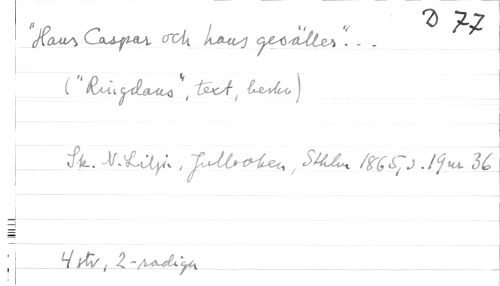 D 77
"Hans Caspar och hans gesäller"...
("Ringdans", text, beskr)
Sk. N. Lilja, Julboken, Sthlm 1865, s. 19 nr 36
4 str, 2-radiga